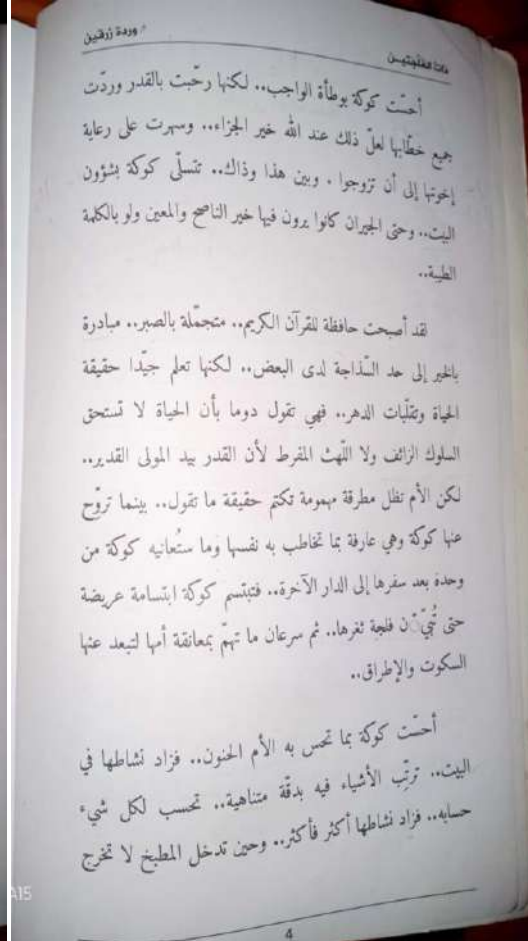 وردة زرقين
ذات الفلجتين
أحسّت كوكة بوطأة الواجب.. لكنها رحّبت بالقدر وردّت
جميع خطّابها لعلّ ذلك عند الله خير الجزاء.. وسهرت على رعاية
إخوتها إلى أن تزوجوا . وبين هذا وذاك.. تتسلّى كوكة بشؤون
البيت.. وحتى الجيران كانوا يرون فيها خير الناصح والمعين ولو بالكلمة
الطيبة..
لقد أصبحت حافظة للقرآن الكريم.. متجمّلة بالصبر.. مبادرة
بالخير إلى حد السّذاجة لدى البعض.. لكنها تعلم جيّدا حقيقة
الحياة وتقلّبات الدهر.. فهي تقول دوما بأن الحياة لا تستحق
السلوك الزائف ولا اللّهث المفرط لأن القدر بيد المولى القدير..
لكن الأم تظل مطرقة مهمومة تكتم حقيقة ما تقول.. بينما تروّح
عنها كوكة وهي عارفة بما تخاطب به نفسها وما ستُعانيه كوكة من
وحدة بعد سفرها إلى الدار الآخرة.. فتبتسم كوكة ابتسامة عريضة
حتى تُبيّ َن فلجة ثغرها.. ثم سرعان ما تهمّ بمعانقة أمها لتبعد عنها
السكوت والإطراق..
أحسّت كوكة بما تحس به الأم الحنون.. فزاد نشاطها في
البيت.. ترتّب الأشياء فيه بدقّة متناهية.. تحسب لكل شيء
حسابه.. فزاد نشاطها أكثر فأكثر.. وحين تدخل المطبخ لا تخرج
4
A15